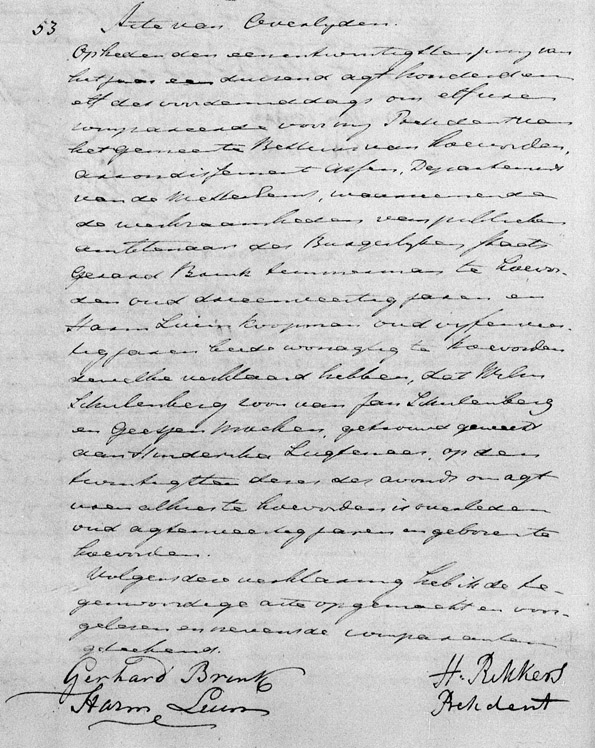 53 Acte van Overlyden.
Op heden den eenentwintigsten juny van
het jaar een duizend agt honderd en
elf des voormiddags om elf uren
compareerde voor my President van
het gemeente Bestuur van Koevorden,
arrondissement Assen, Departement
van de Wester Eems, waarnemende
de werkzaamheden van publieken
amtenaar des Burgerlyken staats
Gerard Brink Timmerman te Koevor-
den oud drieenveertig jaren en
Harm Koopman oud vyfenveer-
tig jaren beide woonagtig te Koevorden
dewelke verklaard hebben, dat Willm
Schulenberg zoon van Jan Schulenberg
en Geesjen getrouwd geweest
aan Hindrikje op den
twintigsten dezes des avonds om agt
uren alhier te Koevorden is overleden
oud agtenveertig jaren en geboren te
Koevorden.
Volgens deze verklaring heb ik de te-
genwoordige acte opgemaakt en voor-
gelezen en nevens de comparanten
geteekend.
Gerhard Brink H. Rikkers
Harm President